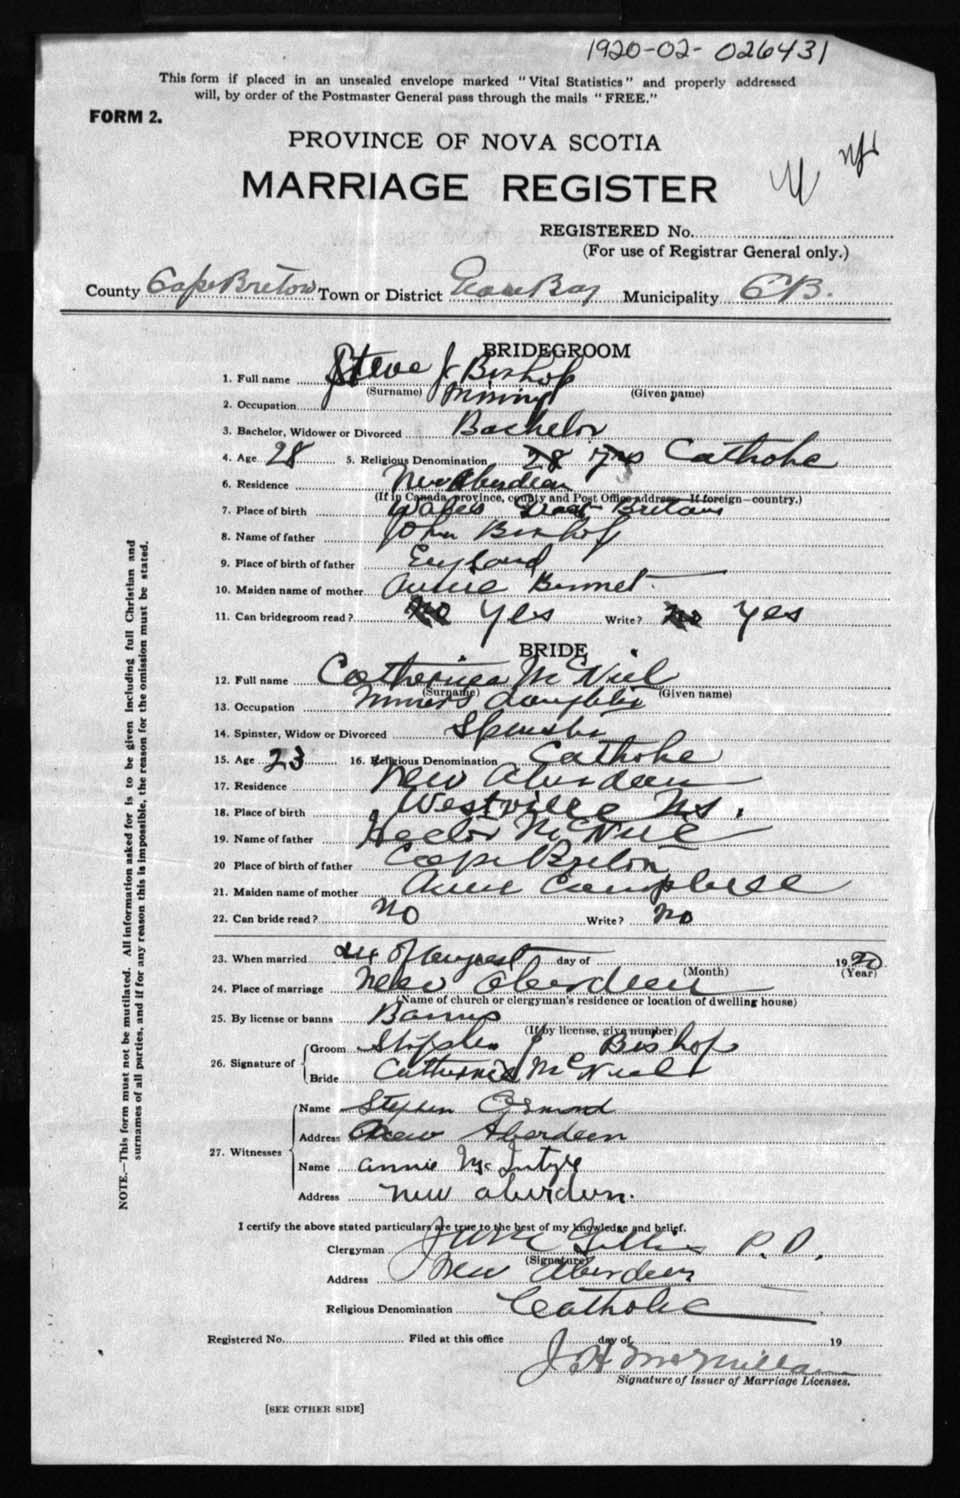 1920-02-026431
This form if placed in an unsealed envelope marked "Vital Statistics" and properly addressed
will, by order of the Postmaster General pass through the mails "FREE."
FORM 2.
PROVINCE OF NOVA SCOTIA
MARRIAGE REGISTER
REGISTERED No.
(For use of Registrar General only.)
County Cape Breton Town or District Glace Bay Municipality C.B.
BRIDEGROOM
1. Full name Steve J Bishop
(Surname) (Given name)
2. Occupation Mining
3. Bachelor, Widower or Divorced Bachelor
4. Age 28 5. Religious Denomination 28 yrs Catholic
6. Residence New Aberdeen
(If in Canada province, county and Post Office address—If foreign—country.)
7. Place of birth Wales Great Britain
8. Name of father John Bishop
9. Place of birth of father England
10. Maiden name of mother Annie
11. Can bridegroom read? No Yes Write? No Yes
BRIDE
12. Full name Catherine McNeil
(Surname) (Given name)
13. Occupation Miners daughter
14. Spinster, Widow or Divorced Spinster
15. Age 23 16. Religious Denomination Catholic
17. Residence New Aberdeen
18. Place of birth Westville N.S.
19. Name of father Hector McNeil
20 Place of birth of father Cape Breton
21. Maiden name of mother Annie Campbell
22. Can bride read? No Write? No
23. When married of August day of 1920
(Month) (Year)
24. Place of marriage New Aberdeen
(Name of church or clergyman's residence or location of dwelling house)
25. By license or banns Banns
(If by license, give number)
26. Signature of Groom Stephen J Bishop
Bride Catherine McNeil
27. Witnesses Name Stephen Ormond
Address New Aberdeen
Name Annie McIntyre
Address New Aberdeen.
I certify the above stated particulars are true to the best of my knowledge and belief.
Clergyman Gillis P.P.
(Signature)
Address New Aberdeen
Religious Denomination Catholic
Registered No. Filed at this office day of 19
J H McMillan
Signature of Issuer of Marriage Licenses.
[SEE OTHER SIDE]
NOTE.—This form must not be mutilated. All information asked for is to be given including full Christian and
surnames of all parties, and if for any reason this is impossible, the reason for the omission must be stated.